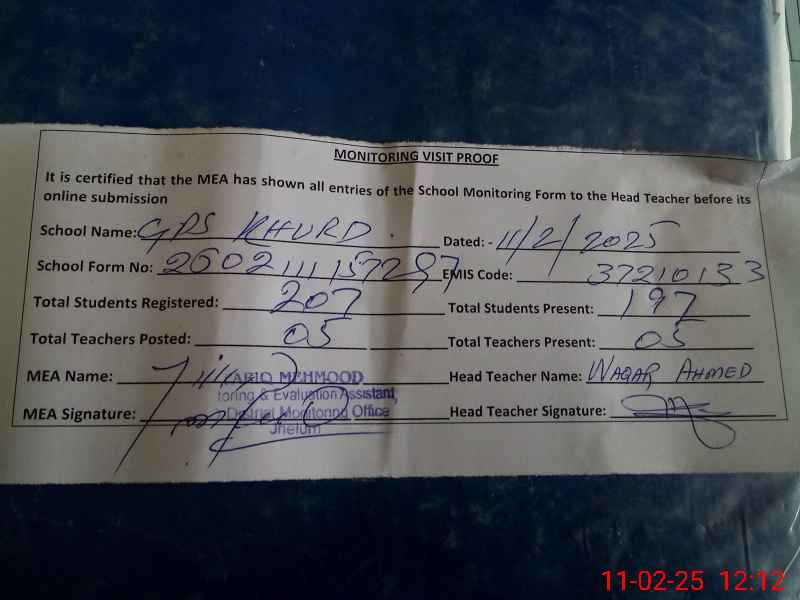 MONITORING VISIT PROOF
It is certified that the MEA has shown all entries of the School Monitoring Form to the Head Teacher before its
online submission
School Name: GPS KHURD. Dated: - 11/2/2025
School Form No: EMIS Code: 37210133
Total Students Registered: 207 Total Students Present: 197
Total Teachers Posted: 05 Total Teachers Present: 05
MEA Name: TARIQ MEHMOOD Head Teacher Name: WAQAR AHMED
toring & Evaluation Assistant,
MEA Signature: District Monitoring Office Head Teacher Signature:
Jhelum
11-02-25 12:12